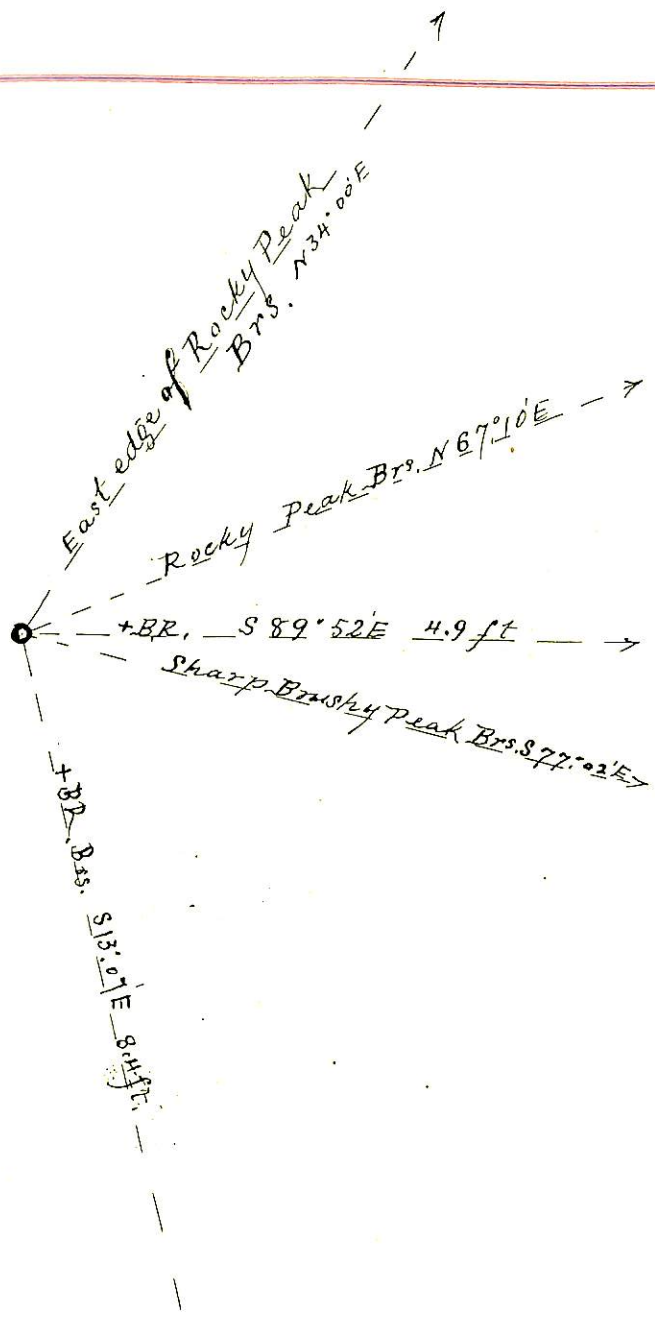 East edge of Rocky Peak
Brs. N34°00'E
Rocky Peak Brs. N67°10'E
+BR. S89°52'E 4.9 ft
Sharp Brushy Peak Brs. S77°02'E
+BR. Brs. S13°07'E 8.4 ft.